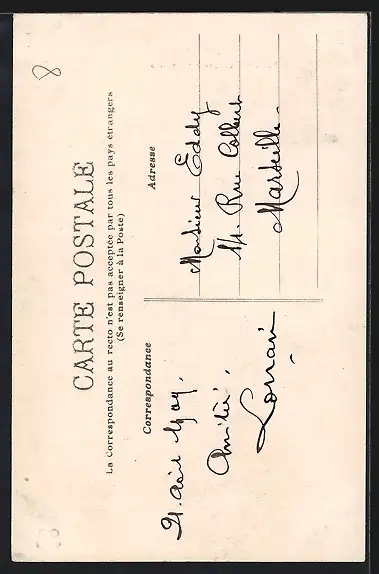 CARTE POSTALE
La Correspondance au recto n'est pas acceptée par tous les pays étrangers
(Se renseigner à la Poste)
Correspondance
Adresse
21 Août 1909.
Amitié,
Lorrain
Monsieur Eddy
Rue Colbert
Marseille
8